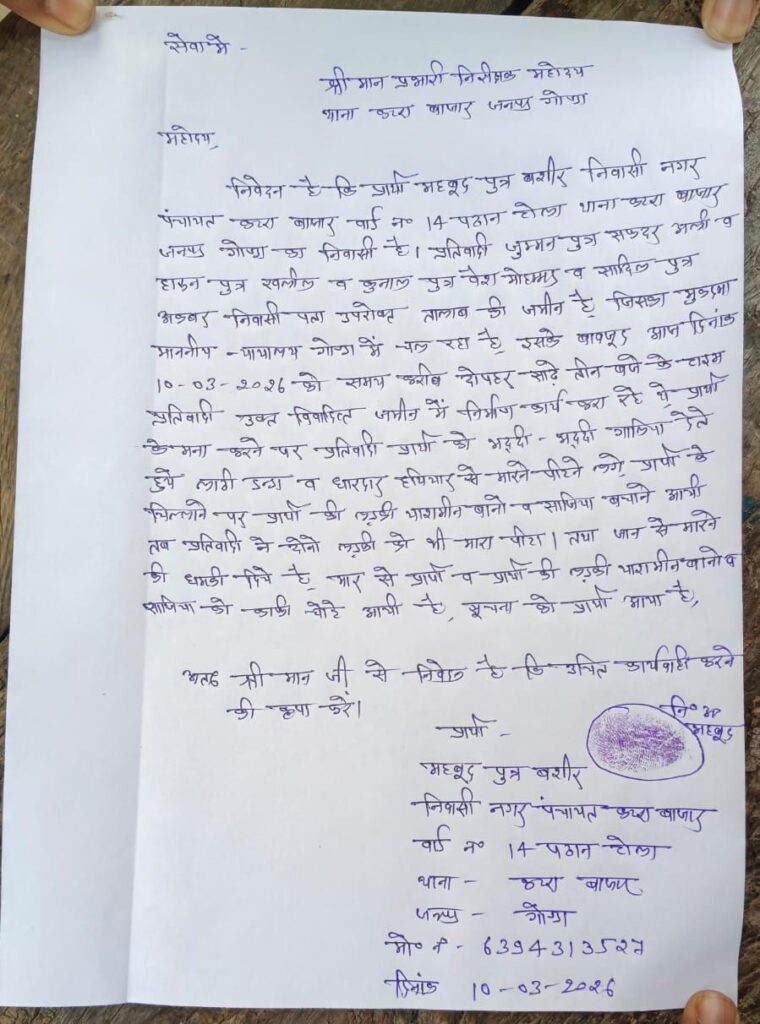 सेवा में -
श्री मान प्रभारी निरीक्षक महोदय
थाना कटरा बाजार जनपद गोण्डा
महोदय,
निवेदन है कि प्रार्थी महबूद पुत्र बशीर निवासी नगर
पंचायत कटरा बाजार वार्ड न० 14 पठान टोला थाना कटरा बाजार
जनपद गोण्डा का निवासी है। प्रतिवादी जुम्मन पुत्र सफदर अली व
हारुन पुत्र खलील व कुनाल पुत्र वैश मोहम्मद व सादिल पुत्र
अकबर निवासी पता उपरोक्त तालाब की जमीन है, जिसका मुकदमा
माननीय न्यायालय गोण्डा में चल रहा है, इसके बावजूद आज दिनांक
10-03-2026 को समय करीब दोपहर साढ़े तीन बजे के टाइम
प्रतिवादी उक्त विवादित जमीन में निर्माण कार्य करा रहे थे, प्रार्थी
के मना करने पर प्रतिवादी प्रार्थी को भद्दी - भद्दी गालिया देते
हुये लाठी डन्डा व धारदार हथियार से मारने पीटने लगे, प्रार्थी के
चिल्लाने पर प्रार्थी की लड़की यासमीन बानो व साजिया बचाने आयी
तब प्रतिवादी ने दोनो लड़की को भी मारा पीटा। तथा जान से मारने
की धमकी दिये है, मार से प्रार्थी व प्रार्थी की लड़की यासमीन बानो व
साजिया को काफी चोटे आयी है, सूचना को प्रार्थी आया है,
अतः श्री मान जी से निवेदन है कि उचित कार्यवाही करने
की कृपा करें।
नि० अं०
महबूद
प्रार्थी -
महबूद पुत्र बशीर
निवासी नगर पंचायत कटरा बाजार
वार्ड न० 14 पठान टोला
थाना - कटरा बाजार
जनपद - गोण्डा
मो० नं - 6394313527
दिनांक 10-03-2026